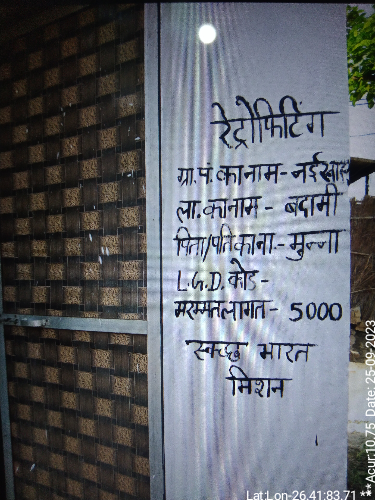 रेट्रोफिटिंग
ग्रा.पं. का नाम - नईखास
ला. का नाम - बदामी
पिता/पति का ना. - मुन्ना
L.G.D. कोड -
मरम्मत लागत - 5000
स्वच्छ भारत
मिशन
Lat:Lon-26.41:83.71 **Acur:10.75 Date: 25-09-2023